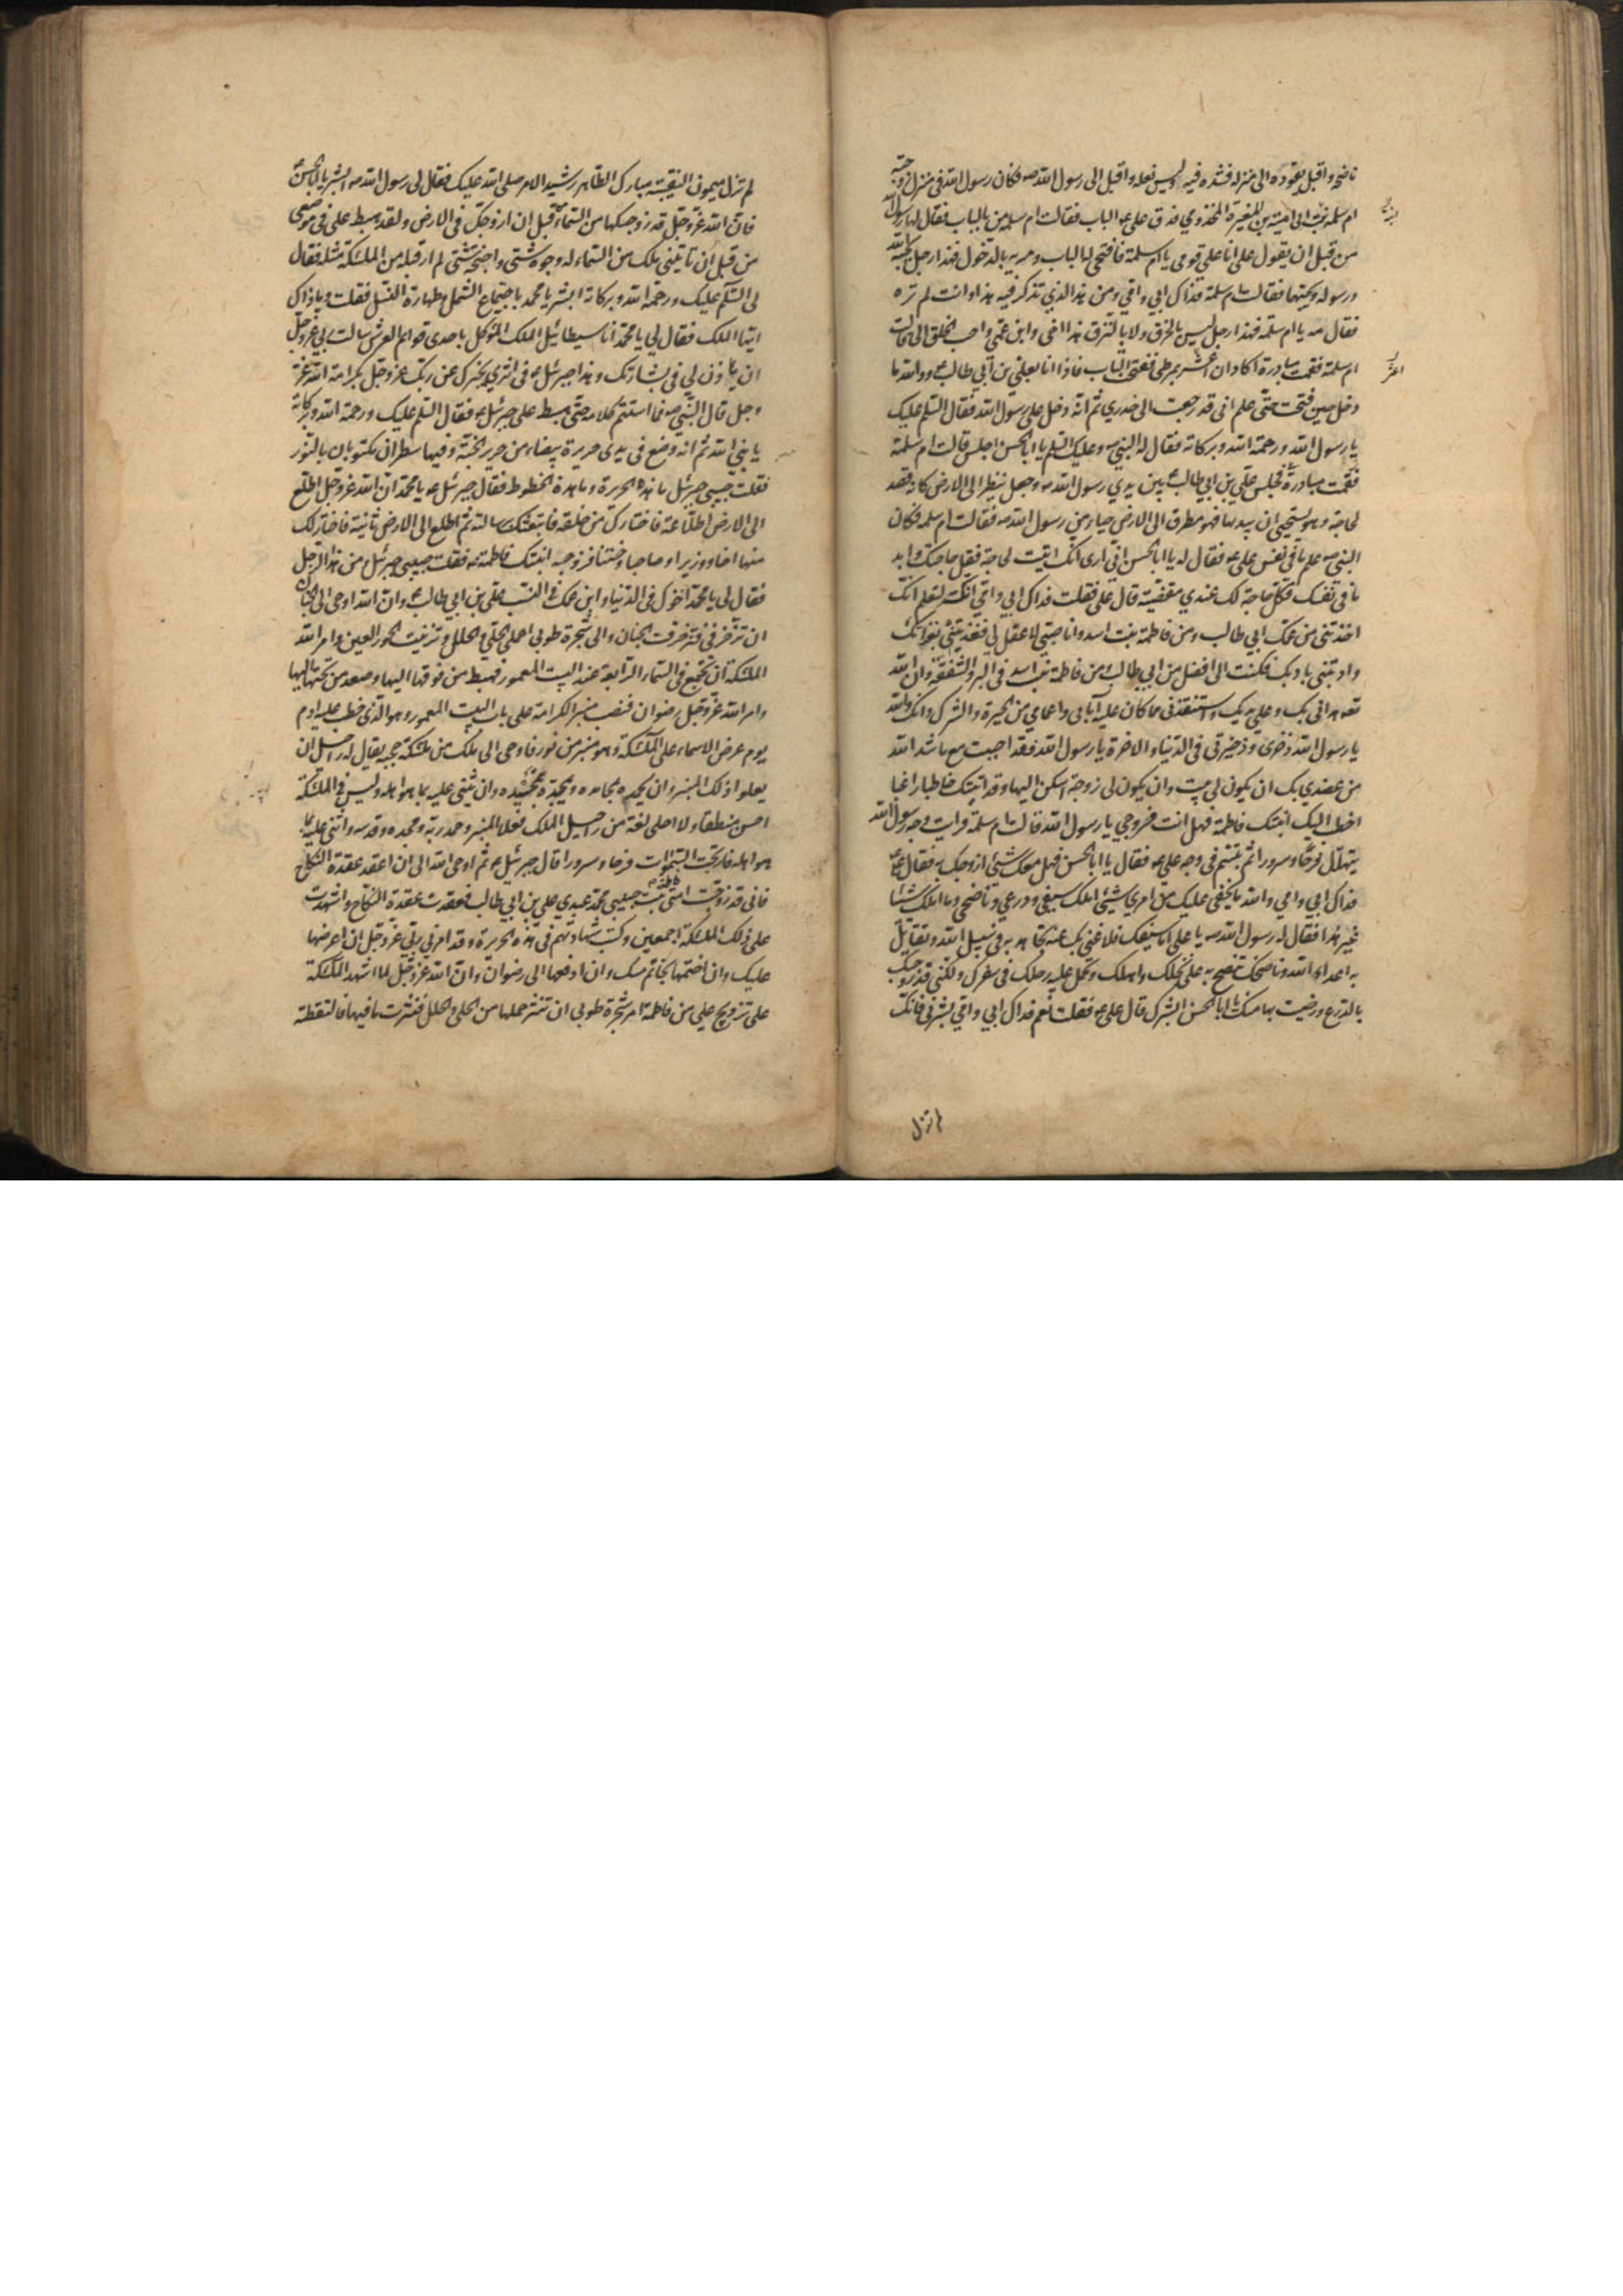 ناضحه واقبل يقوده الى منزله فشده فيه ولبس نعله واقبل الى رسول الله صم فكان رسول الله في منزل زوجته
ام سلمة بنت ابي امية بن المغيرة المخزومي فدق علي ع الباب فقالت ام سلمه من بالباب فقال لها رسول الله
من قبل ان يقول علي انا علي قومي يا ام سلمة فافتحي له الباب ومريه بالدخول فهذا رجل يحبه الله
ورسوله ويحبهما فقالت ام سلمة فداك ابي وامي ومن هذا الذي تذكر فيه هذا وانت لم تره
فقال مه يا ام سلمه فهذا رجل ليس بالخرق ولا بالنزق هذا اخي وابن عمي واحب الخلق الي قالت
ام سلمة فقمت مبادرة اكاد ان اعثر بمرطي ففتحت الباب فاذا انا بعلي بن ابي طالب ع ووالله ما
دخل حين فتحت حتى علم اني قد رجعت الى خدري ثم انه دخل على رسول الله فقال السلم عليك
يا رسول الله ورحمة الله وبركاته فقال له النبي ص وعليك السلم يا ابا الحسن اجلس قالت ام سلمة
فجلس علي بن ابي طالب ع بين يدي رسول الله ص وجعل ينظر الى الارض كانه قصد
لحاجة وهو يستحيي ان يبديها فهو مطرق الى الارض حياء من رسول الله ص فقالت ام سلمه فكان
النبي ص علم ما في نفس علي ع فقال له يا ابا الحسن اني ارى انك اتيت لحاجة فقل حاجتك وابد
ما في نفسك فكل حاجة لك عندي مقضية قال علي فقلت فداك ابي وامي انك لتعلم انك
اخذتني من عمك ابي طالب ومن فاطمة بنت اسد وانا صبي لا عقل لي فغذيتني بغذائك
وادبتني بادبك فكنت الي افضل من ابي طالب ومن فاطمة بنت اسد في البر والشفقة وان الله
تعه هداني بك وعلى يديك واستنقذني مما كان عليه آبائي واعمامي من الحيرة والشرك وانك والله
يا رسول الله ذخري وذخيرتي في الدنيا والاخرة يا رسول الله فقد احببت مع ما شد الله
من عضدي بك ان يكون لي بيت وان يكون لي زوجة اسكن اليها وقد اتيتك خاطبا راغبا
اخطب اليك ابنتك فاطمة فهل انت مزوجي يا رسول الله قالت ام سلمة فرايت وجه رسول الله
يتهلل فرحا وسرورا ثم تبسم في وجه علي ع فقال يا ابا الحسن فهل معك شئ ازوجك به فقال علي ع
فداك ابي وامي والله ما يخفى عليك من امري شئ املك سيفي ودرعي وناضحي وما املك شئا
غير هذا فقال له رسول الله ص يا علي اما سيفك فلا غنى بك عنه تجاهد به في سبيل الله وتقاتل
به اعداء الله وناضحك تنضح به على نخلك واهلك وتحمل عليه رحلك في سفرك ولكني قد زوجتك
بالدرع ورضيت بها منك يا ابا الحسن ابشرك قال علي ع فقلت نعم فداك ابي وامي بشرني فانك
لم تزل
لم تزل ميمون النقيبة مبارك الطاهر رشيد الامر صلى الله عليك فقال لي رسول الله ص ابشر يا ابا الحسن
فان الله عز وجل قد زوجكها من السماء قبل ان ازوجك في الارض ولقد هبط علي في موضعي
من قبل ان تاتيني ملك من السماء له وجوه شتى واجنحة شتى لم ار قبله من الملئكة مثله فقال
لي السلم عليك ورحمة الله وبركاته ابشر يا محمد باجتماع الشمل وطهارة النسل فقلت وما ذاك
ايها الملك فقال لي يا محمد انا سيطائيل الملك الموكل باحدى قوائم العرش سالت ربي عز وجل
ان ياذن لي في بشارتك وهذا جبرئيل ع في اثري يخبرك عن ربك عز وجل بكرامة الله عز
وجل قال النبي ص فما استتم كلامه حتى هبط علي جبرئيل ع فقال السلم عليك ورحمة الله وبركاته
يا نبي الله ثم انه وضع في يدي حريرة بيضاء من حرير الجنة وفيها سطران مكتوبان بالنور
فقلت حبيبي جبرئيل ما هذه الحريرة وما هذه الخطوط فقال جبرئيل ع يا محمد ان الله عز وجل اطلع
الى الارض اطلاعة فاختارك من خلقه فابتعثك برسالته ثم اطلع الى الارض ثانية فاختار لك
منها اخا ووزيرا وصاحبا وختنا فزوجه ابنتك فاطمة فقلت حبيبي جبرئيل من هذا الرجل
فقال لي يا محمد اخوك في الدنيا وابن عمك في النسب علي بن ابي طالب ع وان الله اوحى الى الجنان
ان تزخرفي فتزخرفت الجنان والى شجرة طوبى احملي الحلي والحلل وتزينت الحور العين وامر الله
الملئكة ان تجتمع في السماء الرابعة عند البيت المعمور فهبط من فوقها اليها وصعد من تحتها اليها
وامر الله عز وجل رضوان فنصب منبر الكرامة على باب البيت المعمور وهو الذي خطب عليه ادم
يوم عرض الاسماء على الملئكة وهو منبر من نور فاوحى الى ملك من ملئكة حجبه يقال له راحيل ان
يعلوا ذلك المنبر وان يحمده بمحامده ويمجده بتمجيده وان يثني عليه بما هو اهله وليس في الملئكة
احسن منطقا ولا احلى لغة من راحيل الملك فعلا المنبر وحمد ربه ومجده وقدسه واثنى عليه بما
هو اهله فارتجت السموات فرحا وسرورا قال جبرئيل ع ثم اوحى الله الي ان اعقد عقدة النكاح
فاني قد زوجت امتي فاطمة بنت حبيبي محمد عبدي علي بن ابي طالب فعقدت عقدة النكاح واشهدت
على ذلك الملئكة اجمعين وكتبت شهادتهم في هذه الحريرة وقد امرني ربي عز وجل ان اعرضها
عليك وان اختمها بخاتم مسك وان ادفعها الى رضوان وان الله عز وجل لما اشهد الملئكة
على تزويج علي من فاطمة امر شجرة طوبى ان تنثر حملها من الحلي والحلل فنثرت ما فيها فالتقطته